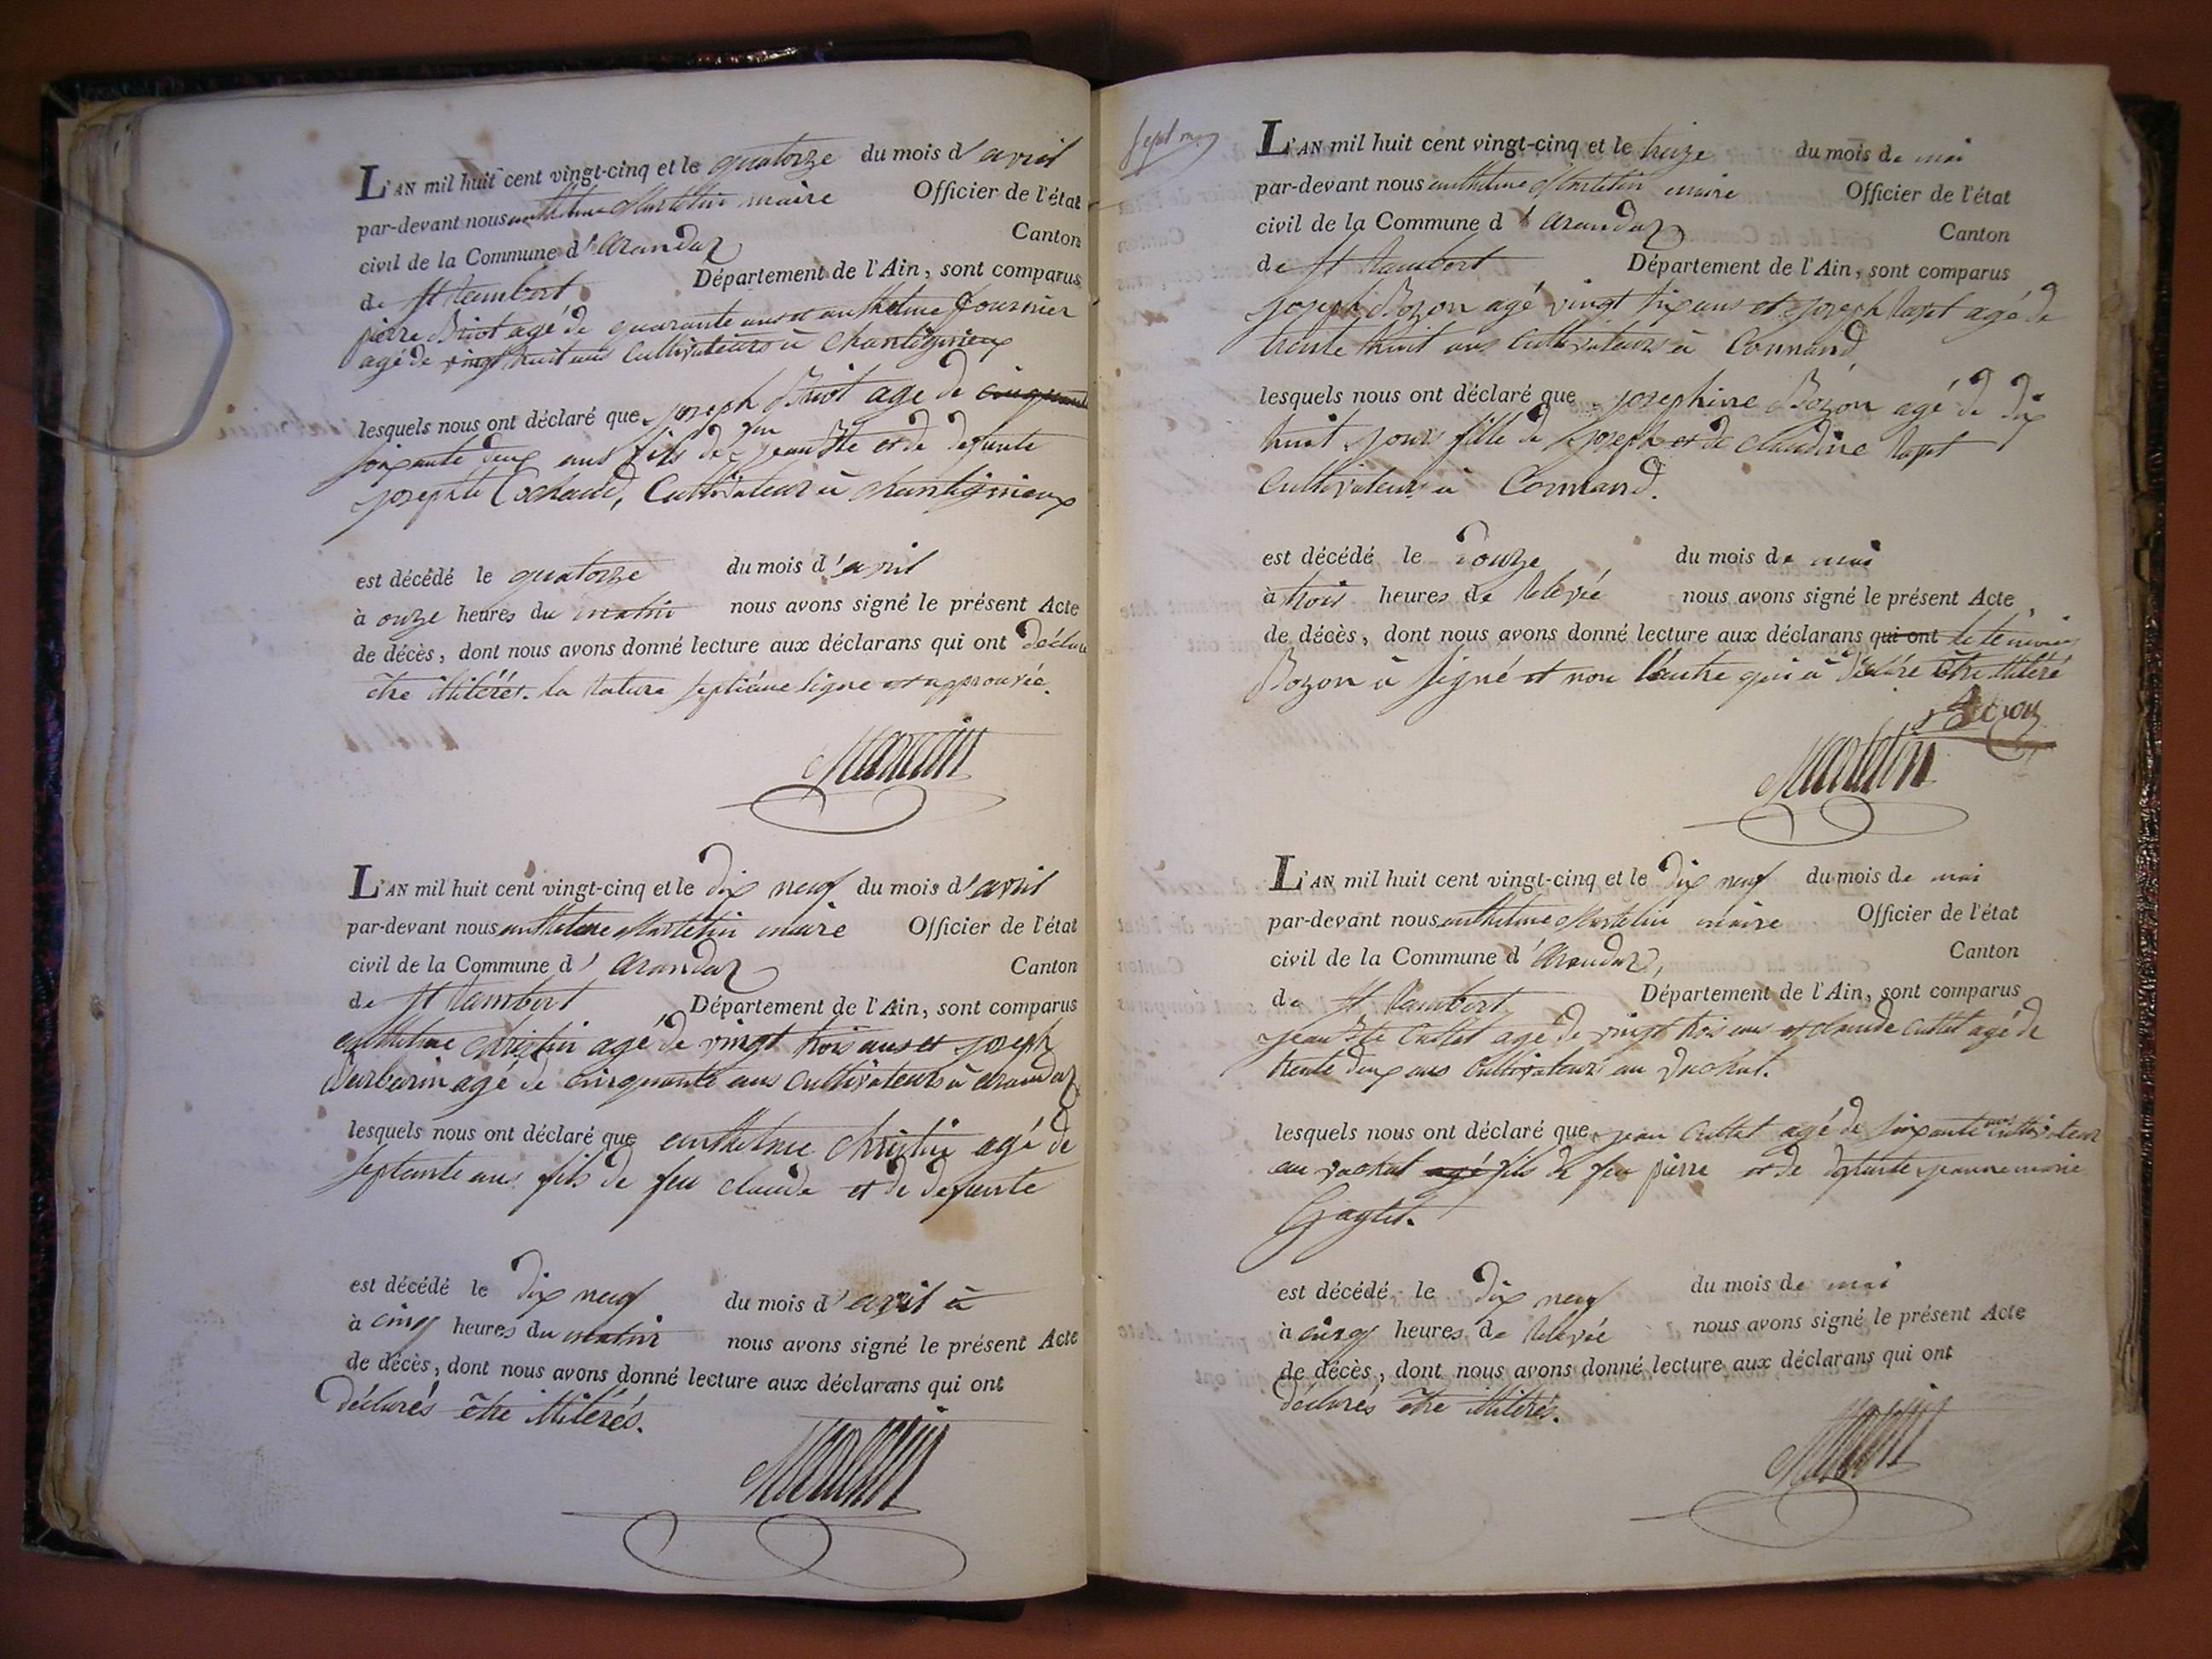 L'AN mil huit cent vingt-cinq et le quatorze du mois d'avril
par-devant nous anthelme Martelin maire Officier de l'état
civil de la Commune d'arandaz Canton
de St Rambert Département de l'Ain, sont comparus
pierre Briot agé de quarante ans et anthelme fournier
agé de vingt huit ans Cultivateurs à Chantignieux
lesquels nous ont déclaré que joseph Briot age de cinquante
soixante deux ans fils de feu jean Bte et de defunte
josephte Cultivateur à chantignieux
est décédé le quatorze du mois d'avril
à onze heures du matin nous avons signé le présent Acte
de décès, dont nous avons donné lecture aux déclarans qui ont déclaré
être illitérés. la rature septième ligne est approuvée.
Martelin
L'AN mil huit cent vingt-cinq et le dix neuf du mois d'avril
par-devant nous anthelme Martelin maire Officier de l'état
civil de la Commune d'arandaz Canton
de St Rambert Département de l'Ain, sont comparus
anthelme christin agé de vingt trois ans et joseph
Barbarin agé de cinquante ans cultivateurs à arandaz
lesquels nous ont déclaré que anthelme christin agé de
septante ans fils de feu claude et de defunte
est décédé le dix neuf du mois d'avril à
à cinq heures du matin nous avons signé le présent Acte
de décès, dont nous avons donné lecture aux déclarans qui ont
déclarés être illitérés.
Martelin
L'AN mil huit cent vingt-cinq et le treize du mois de mai
par-devant nous anthelme Martelin maire Officier de l'état
civil de la Commune d'arandaz Canton
de St Rambert Département de l'Ain, sont comparus
joseph Bozon agé vingt six ans et joseph agé de
trente huit ans cultivateurs à Connand
lesquels nous ont déclaré que josephine Bozon agé de dix
huit jours fille de joseph et de claudine
Cultivateurs à Connand.
est décédé le douze du mois de mai
à trois heures de relevée nous avons signé le présent Acte
de décès, dont nous avons donné lecture aux déclarans qui ont le témoin
Bozon à signé et non l'autre qui à déclaré être illitéré
Bozon
Martelin
L'AN mil huit cent vingt-cinq et le dix neuf du mois de mai
par-devant nous anthelme Martelin maire Officier de l'état
civil de la Commune d'arandaz, Canton
de St Rambert Département de l'Ain, sont comparus
jean Bte Cullet agé de vingt trois ans et claude Cullet agé de
trente deux ans Cultivateurs au vachat.
lesquels nous ont déclaré que jean Cullet agé de soixante ans cultivateur
au vachat agé fils de feu pierre et de defunte jeanne marie
est décédé le dix neuf du mois de mai
à cinq heures de relevée nous avons signé le présent Acte
de décès, dont nous avons donné lecture aux déclarans qui ont
déclarés être illitérés.
Martelin